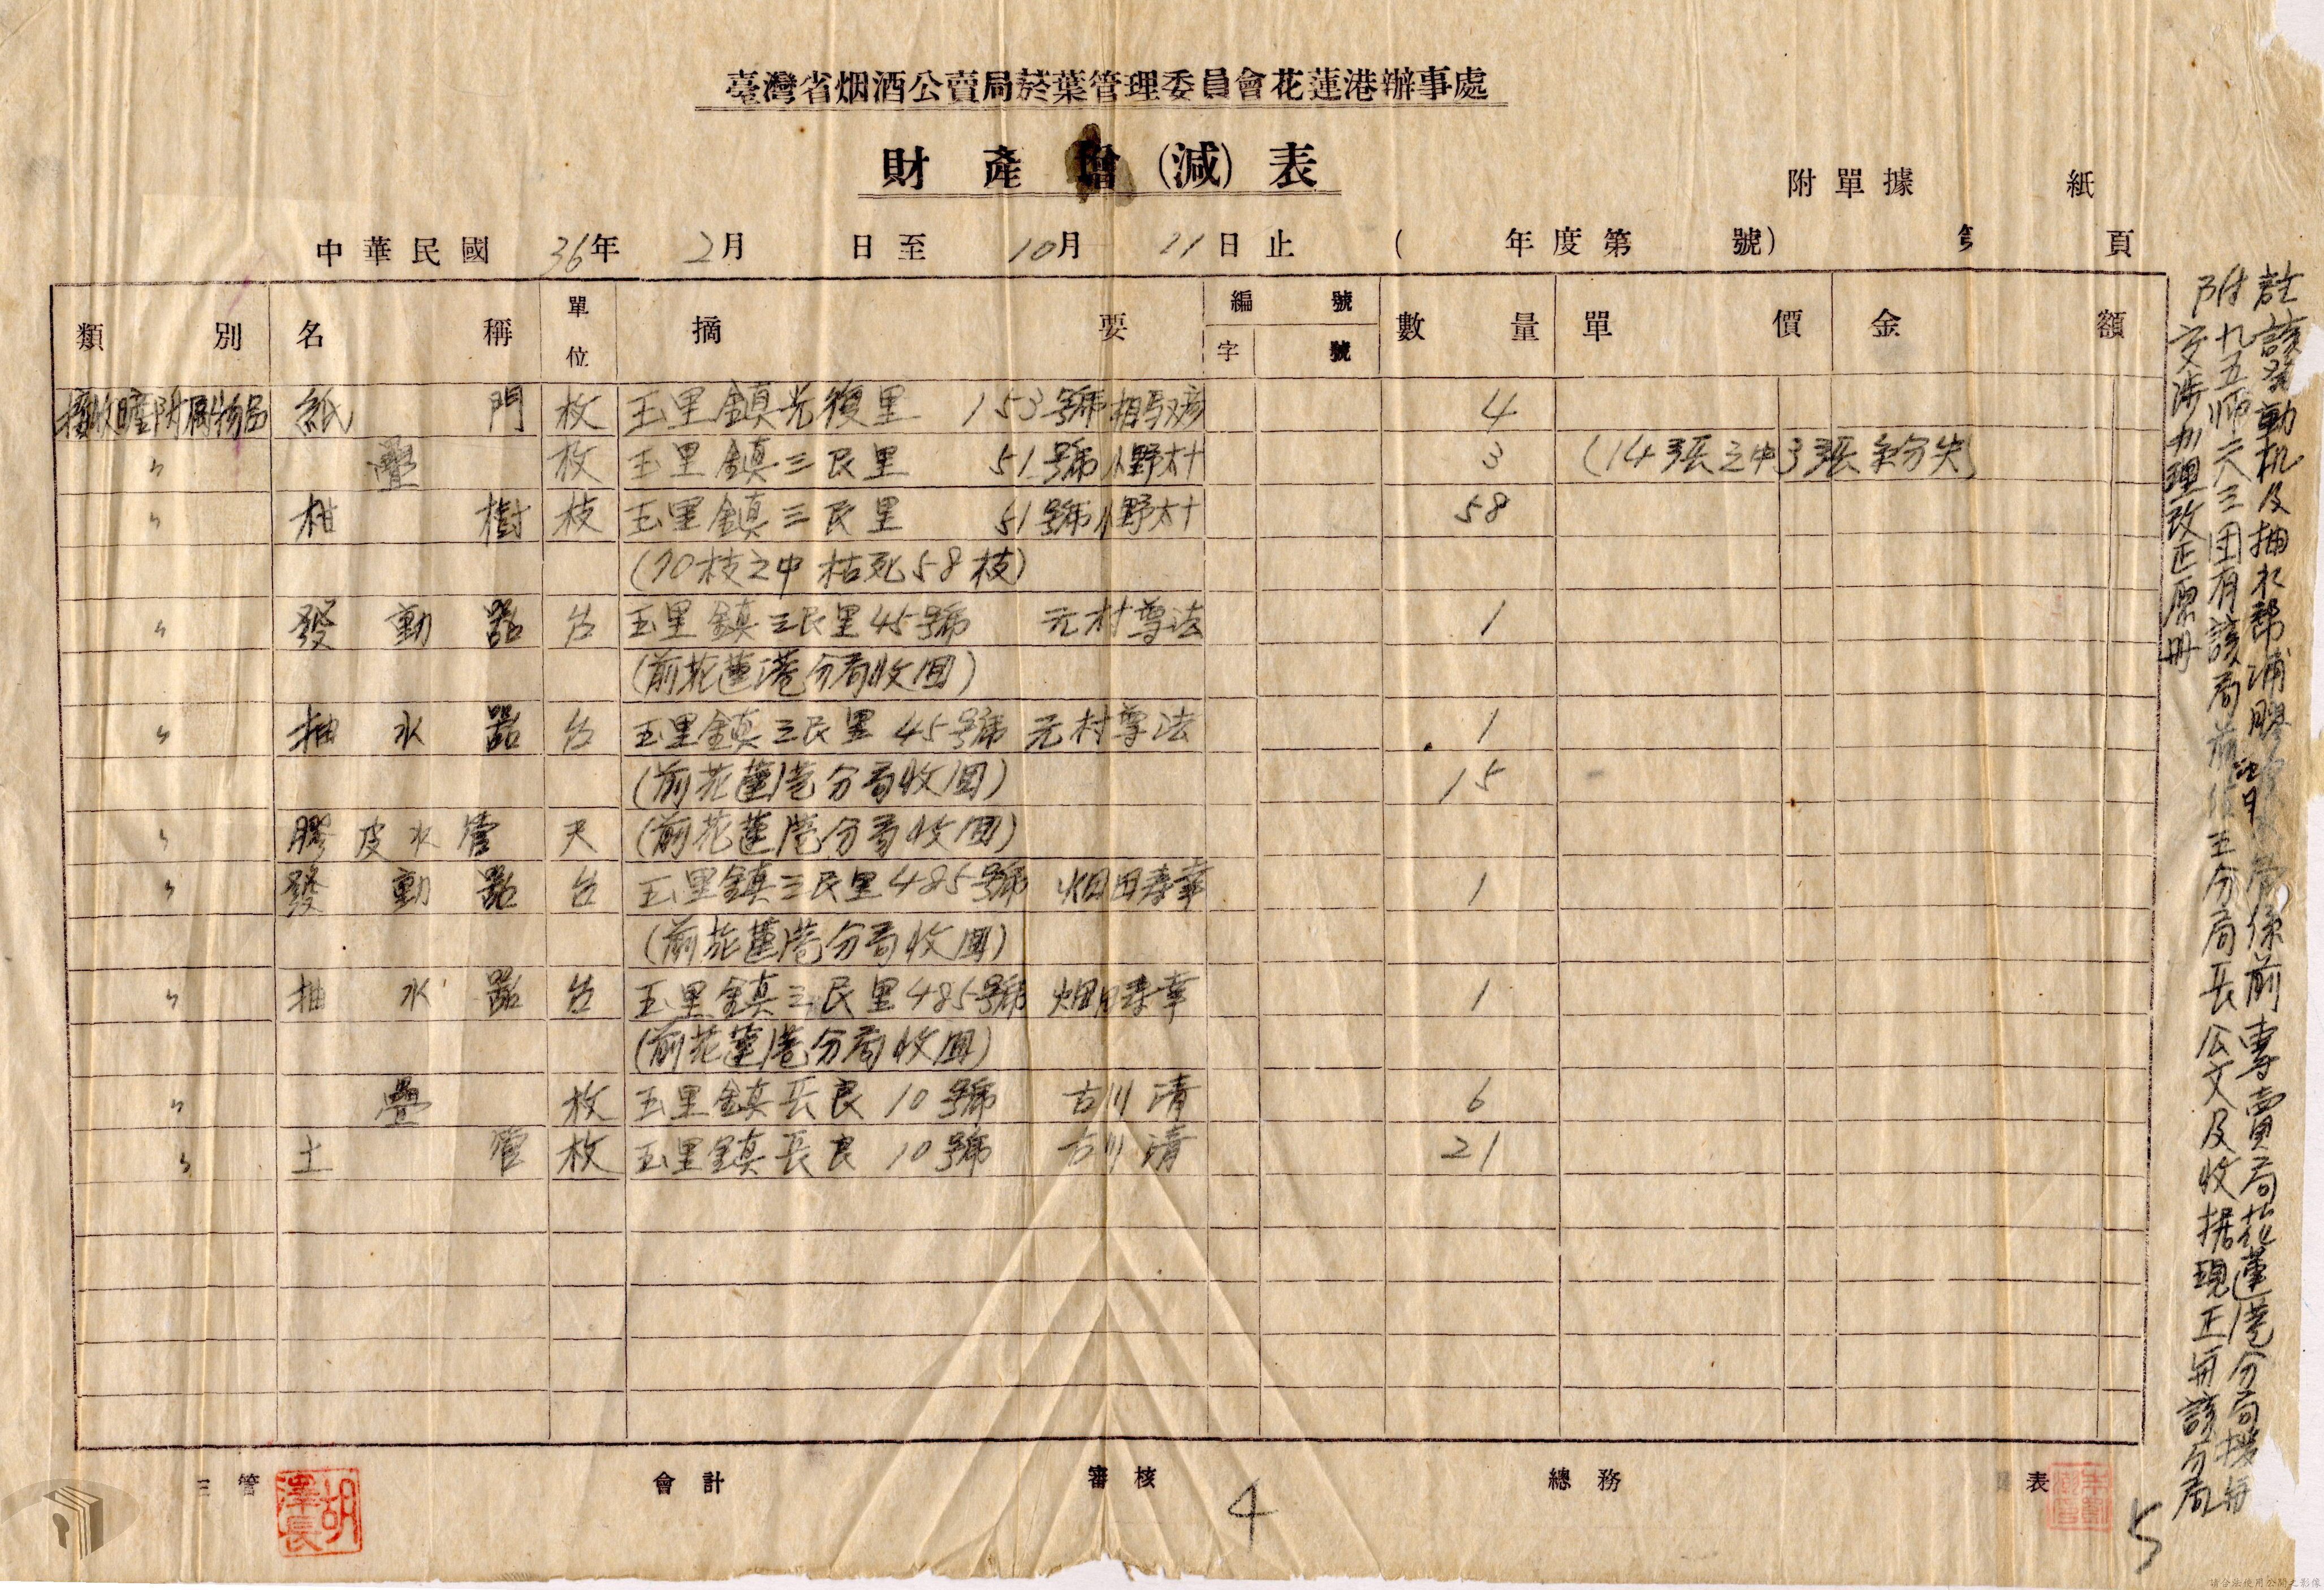 臺灣省烟酒公賣局菸葉管理委員會花蓮港辦事處
財產增(減)表
附單據 紙
中華民國 36年 2月 日至 10月 21日止 ( 年度第 號) 頁
類別 名稱 單位 摘要 編號 字 號 數量 單價 金額
接收 附屬物品 紙門 枚 玉里鎮光復里 153號 4
〃 疊 枚 玉里鎮三民里 51號 小野太十 3 (14張之中3張紛失)
〃 柑樹 枝 玉里鎮三民里 51號 小野太十 58
(70枝之中枯死58枝)
〃 發動器 台 玉里鎮三民里45號 元村尊法 1
(前花蓮港分局收回)
〃 抽水器 台 玉里鎮三民里45號 元村尊法 1
(前花蓮港分局收回) 15
〃 膠皮水管 尺 (前花蓮港分局收回)
〃 發動器 台 玉里鎮三民里485號 烟田春華 1
(前花蓮港分局收回)
〃 抽水器 台 玉里鎮三民里485號 烟田春華 1
(前花蓮港分局收回)
〃 疊 枚 玉里鎮長良 10號 古川清 6
〃 土管 枚 玉里鎮長良 10號 古川清 21
附註 該發動机及抽水 管係前專賣局花蓮港分局撥与
九五师六三团有該局前 王分局長公文及收据現正与該分局
交涉 理改正原冊
管 會計 審核 總務 表
胡澤長
4
5
請合法使用公開之影像